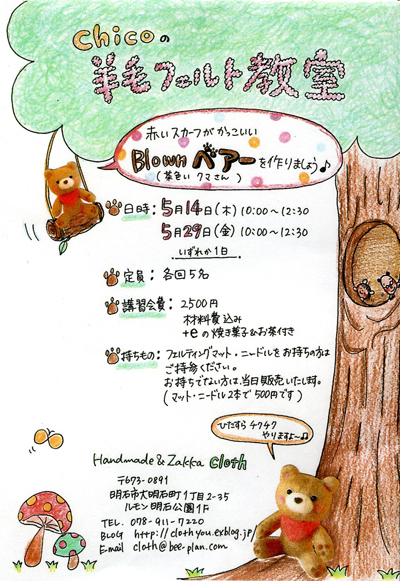 chicoの
羊毛フェルト教室
赤いスカーフが かっこいい
Blown ベアーを作りましょう♪
(茶色い クマさん)
日時：5月14日(木) 10:00〜12:30
5月29日(金) 10:00〜12:30
いずれか1日
定員：各回5名
講習会費：2500円
材料費込み
+eの焼き菓子&お茶付き
持ちもの：フェルティングマット・ニードルをお持ちの方は
ご持参ください。
お持ちでない方は、当日販売いたします。
(マット・ニードル2本で500円です)
ひたすらチクチク
やりますよ〜♫
Handmade & Zakka cloth
〒673-0891
明石市大明石町1丁目2-35
ルモン明石公園1F
TEL. 078-911-7220
BLOG http://clothyou.exblog.jp/
Email cloth@bee-plan.com